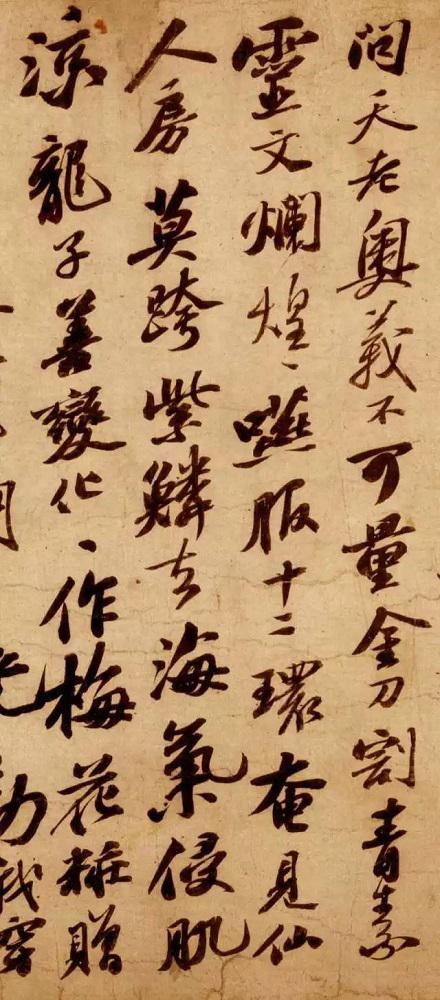 問天老奥義不可量金刀割青素
靈文爛煌〻嚥服十二環奄見仙
人房莫跨紫鱗去海氣侵肌
涼龍子善變化〻作梅花粧贈